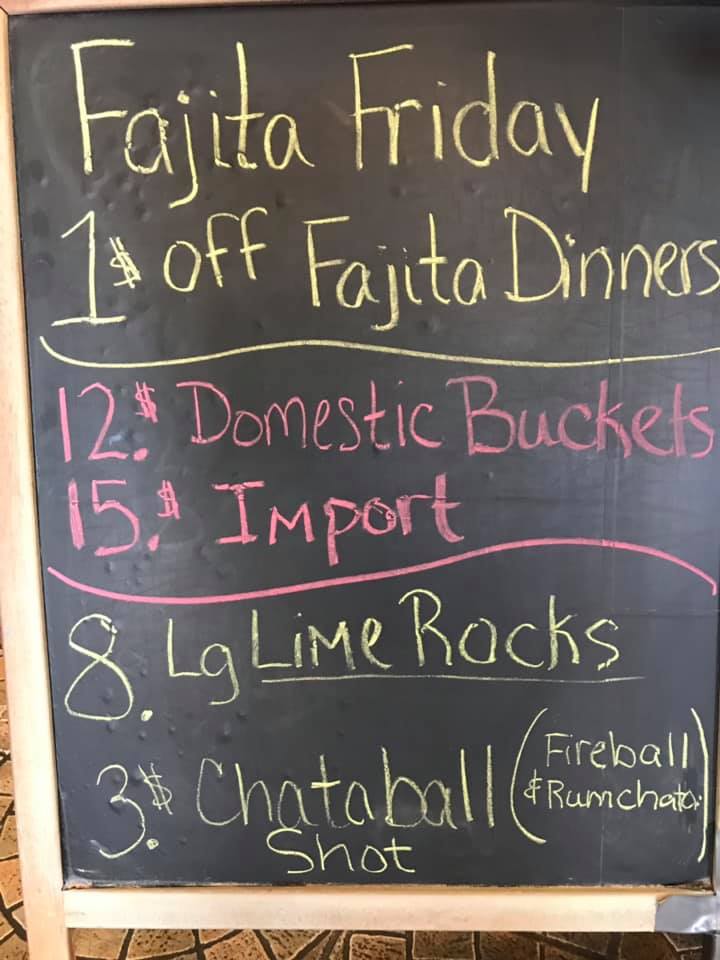 Fajita Friday
1$ off Fajita Dinners
12.$ Domestic Buckets
15.$ Import
8. Lg Lime Rocks
3.$ Chataball (Fireball
& Rumchata)
Shot